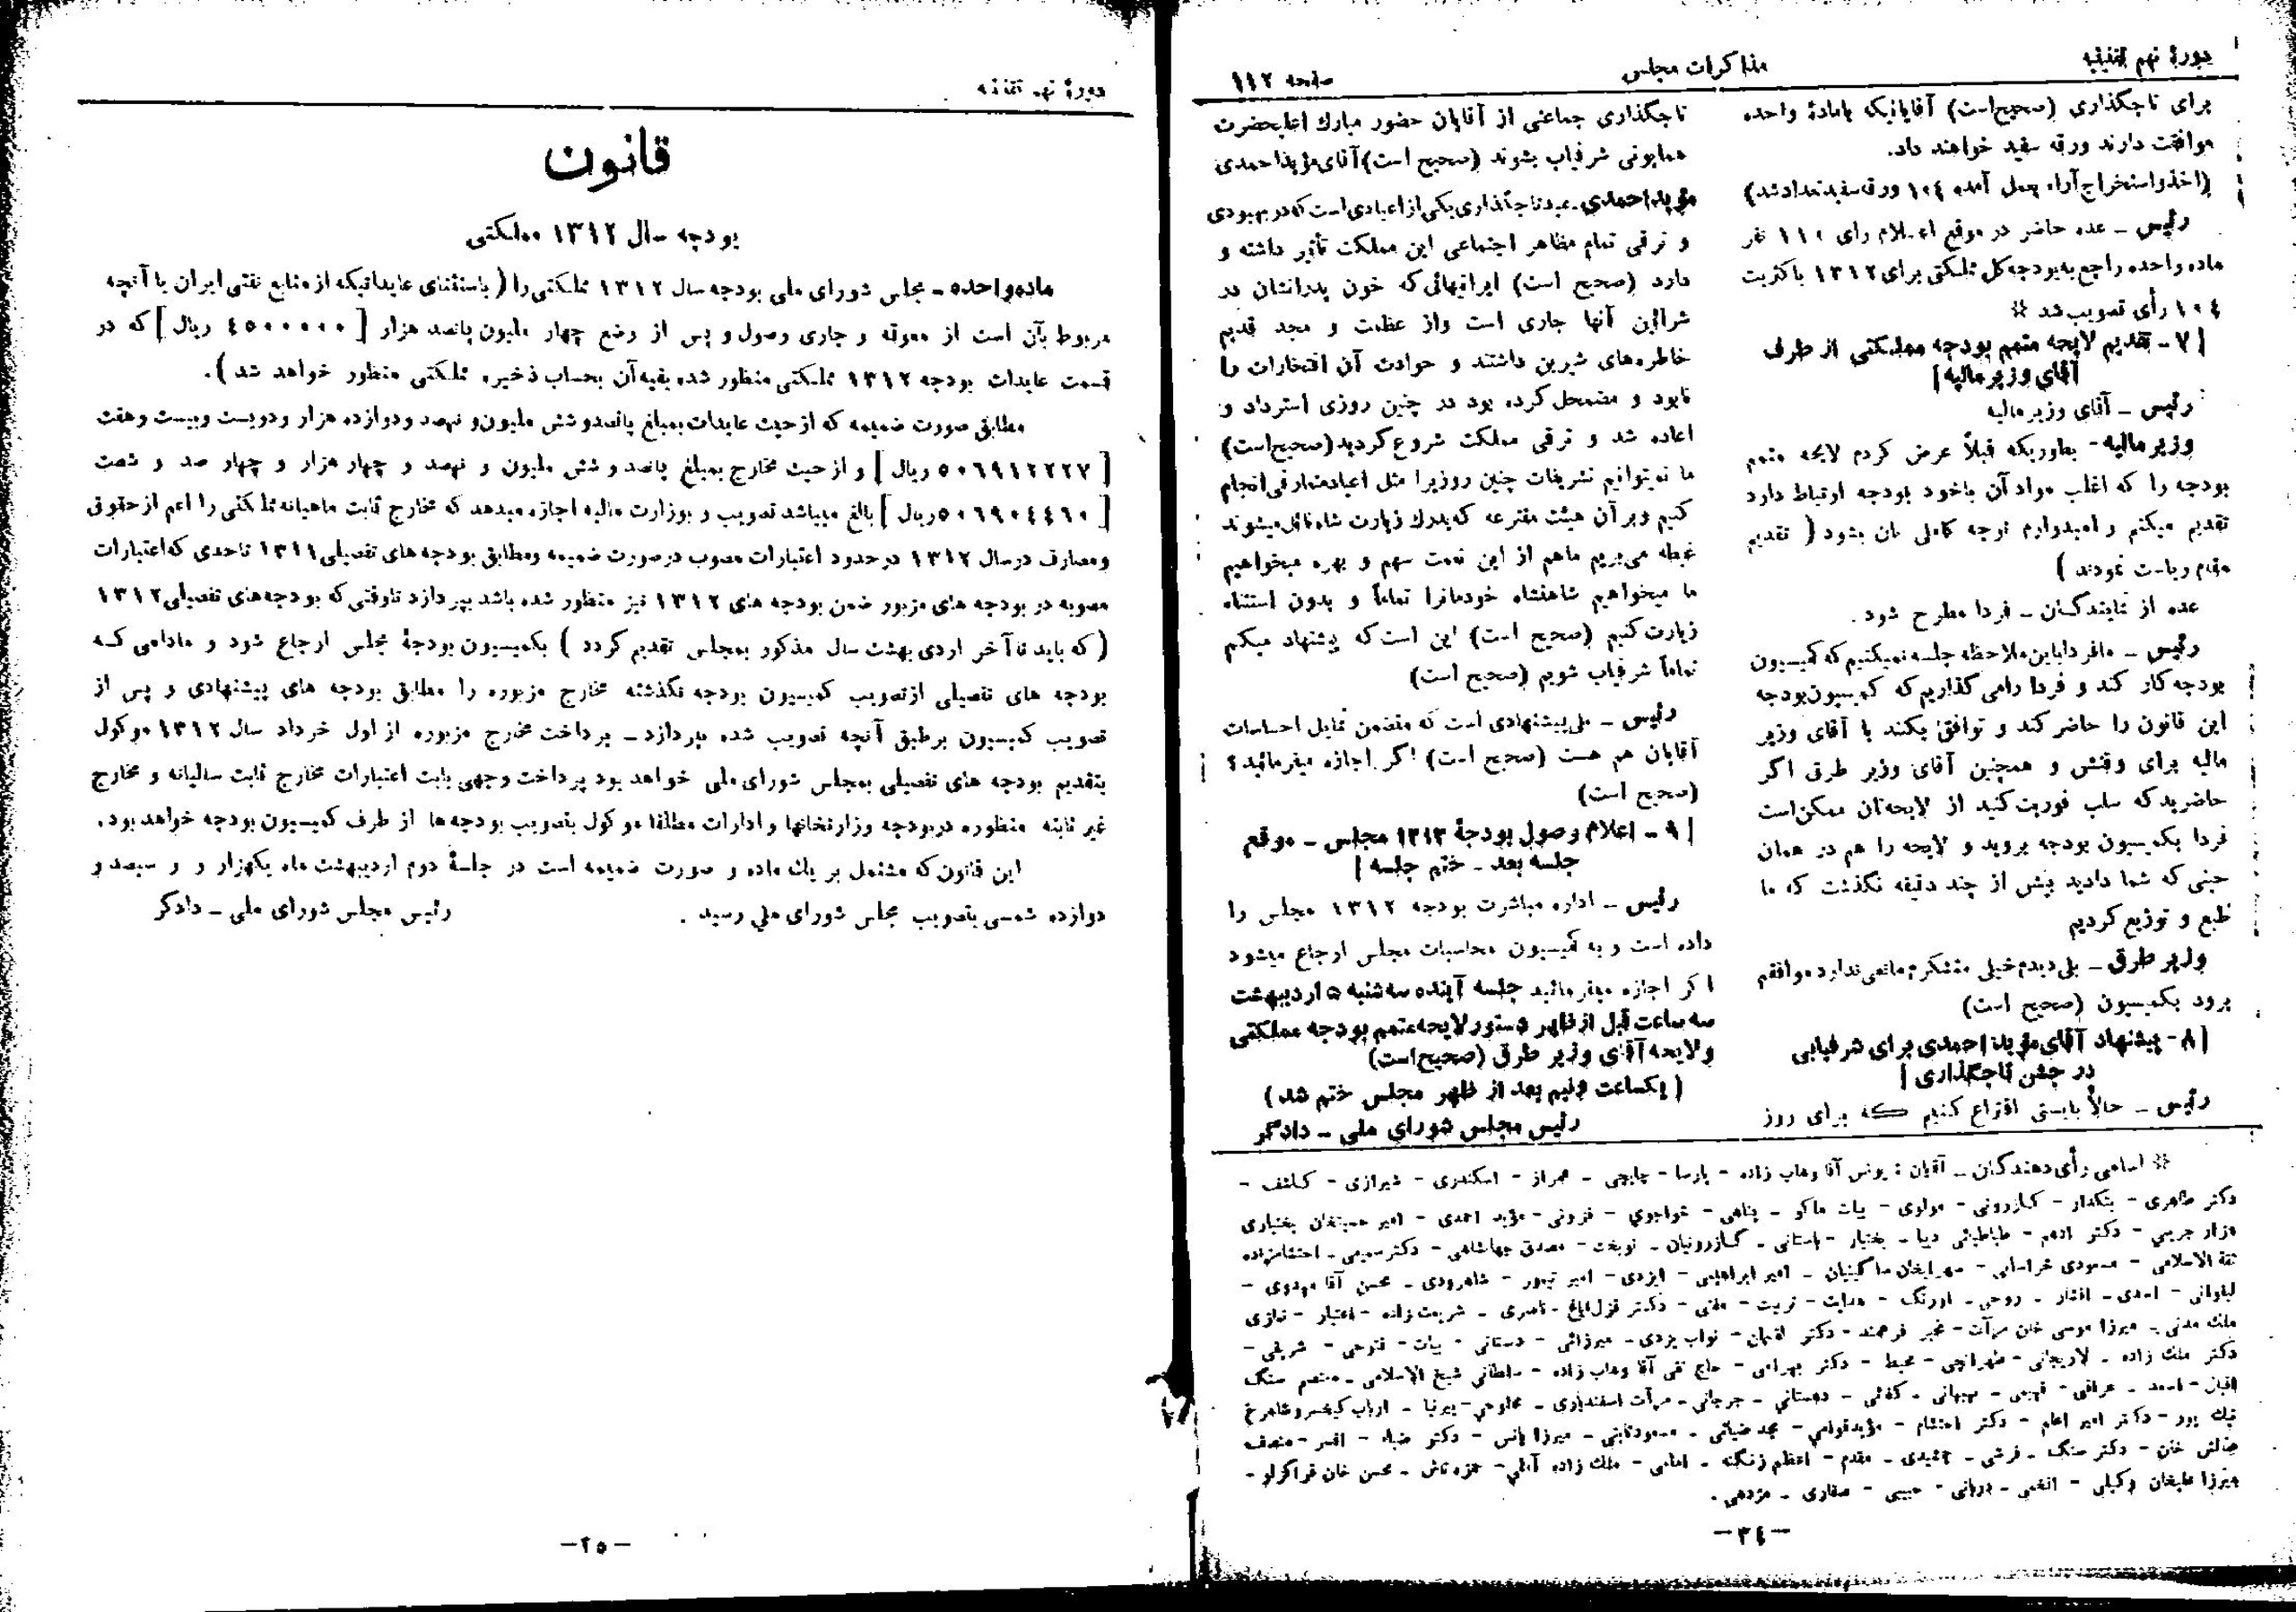 دورهٔ نهم تقنینیه
مذاکرات مجلس
صفحه ۱۱۲
برای تاجگذاری (صحیح‌است) آقایانیکه بامادهٔ واحده
موافقت دارند ورقه سفید خواهند داد.
(اخذ و استخراج آراء بعمل آمده ۱۰٤ ورقه سفید تعداد شد)
رئیس ـ عده حاضر در موقع اعلام رای ۱۱۰ نفر
ماده واحده راجع به بودجه کل مملکتی برای ۱۳۱۲ با کثریت
۱۰٤ رأی تصویب شد ※
[ ۷ ـ تقدیم لایحه متمم بودجه مملکتی از طرف
آقای وزیر مالیه]
رئیس ـ آقای وزیر مالیه
وزیر مالیه - بطوریکه قبلاً عرض کردم لایحه متمم
بودجه را که اغلب مواد آن باخود بودجه ارتباط دارد
تقدیم میکنم و امیدوارم توجه کاملی بآن بشود ( تقدیم
مقام ریاست نمودند )
عده از نمایندگان ـ فردا مطرح شود .
رئیس ـ مافردا باین ملاحظه جلسه نمیکنیم که کمیسیون
بودجه کار کند و فردا را می گذاریم که کمیسیون بودجه
این قانون را حاضر کند و توافق بکنند با آقای وزیر
مالیه برای وقتش و همچنین آقای وزیر طرق اگر
حاضرید که سلب فوریت کنید از لایحه‌تان ممکن‌است
فردا بکمیسیون بودجه بروید و لایحه را هم در همان
حینی که شما دادید بیش از چند دقیقه نگذشت که ما
طبع و توزیع کردیم
وزیر طرق ـ بلی دیدم خیلی متشکرم مانعی ندارد موافقم
برود بکمیسیون (صحیح است)
[ ۸ - پیشنهاد آقای مؤید احمدی برای شرفیابی
در جشن تاجگذاری ]
رئیس ـ حالا بایستی اقتراع کنیم که برای روز
تاجگذاری جماعتی از آقایان حضور مبارك اعلیحضرت
همایونی شرفیاب بشوند (صحیح است) آقای مؤید احمدی
مؤید احمدی ـ عید تاجگذاری یکی از اعیادی است که در بهبودی
و ترقی تمام مظاهر اجتماعی این مملکت تأثیر داشته و
دارد (صحیح است) ایرانیهائی که خون پدرانشان در
شرائین آنها جاری است واز عظمت و مجد قدیم
خاطره‌های شیرین داشتند و حوادث آن افتخارات را
نابود و مضمحل کرده بود در چنین روزی استرداد و
اعاده شد و ترقی مملکت شروع گردید (صحیح‌است)
ما نمیتوانیم تشریفات چنین روزیرا مثل اعیاد متعارفی انجام
کنیم و بر آن هیئت مقترعه که بدرك زیارت شاه نائل میشوند
غبطه می‌بریم ماهم از این نعمت سهم و بهره میخواهیم
ما میخواهیم شاهنشاه خودمانرا تماماً و بدون استثناء
زیارت کنیم (صحیح است) این است که پیشنهاد میکنم
تماماً شرفیاب شویم (صحیح است)
رئیس ـ بلی پیشنهادی است که متضمن تمایل احساسات
آقایان هم هست (صحیح است) اگر اجازه میفرمائید؟
(صحیح است)
[ ۹ ـ اعلام وصول بودجهٔ ۱۳۱۲ مجلس ـ موقع
جلسه بعد ـ ختم جلسه ]
رئیس ـ اداره مباشرت بودجه ۱۳۱۲ مجلس را
داده است و به کمیسیون محاسبات مجلس ارجاع میشود
اگر اجازه میفرمائید جلسه آینده سه شنبه ۵ اردیبهشت
سه ساعت قبل از ظهر دستور لایحه متمم بودجه مملکتی
ولایحه آقای وزیر طرق (صحیح‌است)
( یکساعت ونیم بعد از ظهر مجلس ختم شد )
رئیس مجلس شورای ملی ـ دادگر
※ اسامی رأی دهندگان ـ آقایان : یونس آقا وهاب زاده - پارسا - چایچی - همراز - اسکندری - شیرازی - کاشف -
دکتر طاهری - بنکدار - کازرونی - مولوی - بیات ماکو - پناهی - خواجوی - فزونی - مؤید احمدی - امیر حسینخان بختیاری
هزار جریبی - دکتر ادهم - طباطبائی دیبا - بختیار - باستانی - کازرونیان - نوبخت - مصدق جهانشاهی - دکتر سمیعی - احتشامزاده
ثقة الاسلامی - مسعودی خراسانی - سهرابخان ساگینیان - امیر ابراهیمی - ایزدی - امیر تیمور - شاهرودی - محسن آقا مهدوی -
لیقوانی - اسدی - افشار - روحی - اورنگ - هدایت - تربیت - مفتی - دکتر قزل ایاغ - ناصری - شریعت زاده - اعتبار - نمازی
ملك مدنی - میرزا موسی خان مرآت - مخبر فرهمند - دکتر لقمان - نواب یزدی - میرزائی - دستانی - بیات - فتوحی - شریفی -
دکتر ملك زاده - لاریجانی - طهرانچی - محیط - دکتر بهرامی - حاج تقی آقا وهاب زاده - سلطانی شیخ الاسلامی - معتصم سنگ
اقبال - اسعد - عراقی - فهیمی - بهبهانی - کفائی - دهستانی - جرجانی - مرآت اسفندیاری - مخلوجی - پیرنیا - ارباب کیخسرو شاهرخ
نیك پور - دکتر امیر اعلم - دکتر احتشام - مؤید قوامی - مجد ضیائی - مسعود ثابتی - میرزا یانس - دکتر ضیاء - افسر - منصف
طالش خان - دکتر سنگ - فرشی - جمشیدی - مقدم - اعظم زنگنه - امامی - ملك زاده آملی - حمزه تاش - محسن خان قراگزلو -
میرزا علیخان وکیلی - افخمی - یزدانی - حبیبی - صفاری - مژدهی .
-۳٤-
دورهٔ نهم تقنینیه
قانون
بودجه سال ۱۳۱۲ مملکتی
ماده واحده ـ مجلس شورای ملی بودجه سال ۱۳۱۲ مملکتی را ( باستثنای عایداتیکه از منابع نفتی ایران یا آنچه
مربوط بآن است از معوقه و جاری وصول و پس از وضع چهار ملیون پانصد هزار [ ٤۵۰۰۰۰۰ ریال ] که در
قسمت عایدات بودجه ۱۳۱۲ مملکتی منظور شده بقیه آن بحساب ذخیره مملکتی منظور خواهد شد ).
مطابق صورت ضمیمه که از حیث عایدات بمبلغ پانصدو شش ملیون و نهصد و دوازده هزار و دویست و بیست و هفت
[ ۵۰۶۹۱۲۲۲۷ ریال ] و از حیث مخارج بمبلغ پانصد و شش ملیون و نهصد و چهار هزار و چهار صد و شصت
[ ۵۰۶۹۰٤٤۶۰ریال ] بالغ میباشد تصویب و بوزارت مالیه اجازه میدهد که مخارج ثابت ماهیانه مملکتی را اعم از حقوق
و مصارف در سال ۱۳۱۲ در حدود اعتبارات مصوب در صورت ضمیمه و مطابق بودجه های تفصیلی ۱۳۱۱ تاحدی که اعتبارات
مصوبه در بودجه های مزبور ضمن بودجه های ۱۳۱۲ نیز منظور شده باشد بپردازد تاوقتی که بودجه‌های تفصیلی ۱۳۱۲
( که باید تا آخر اردی بهشت سال مذکور بمجلس تقدیم گردد ) بکمیسیون بودجهٔ مجلس ارجاع شود و مادامی که
بودجه های تفصیلی از تصویب کمیسیون بودجه نگذشته مخارج مزبوره را مطابق بودجه های پیشنهادی و پس از
تصویب کمیسیون بر طبق آنچه تصویب شده بپردازد ـ پرداخت مخارج مزبوره از اول خرداد سال ۱۳۱۲ موکول
بتقدیم بودجه های تفصیلی بمجلس شورای ملی خواهد بود پرداخت وجهی بابت اعتبارات مخارج ثابت سالیانه و مخارج
غیر ثابته منظوره در بودجه وزارتخانها و ادارات مطلقا موکول بتصویب بودجه‌ها از طرف کمیسیون بودجه خواهد بود .
این قانون که مشتمل بر یك ماده و صورت ضمیمه است در جلسهٔ دوم اردیبهشت ماه یکهزار و و سیصد و
دوازده شمسی بتصویب مجلس شورای ملی رسید .
رئیس مجلس شورای ملی ـ دادگر
-۲۵-